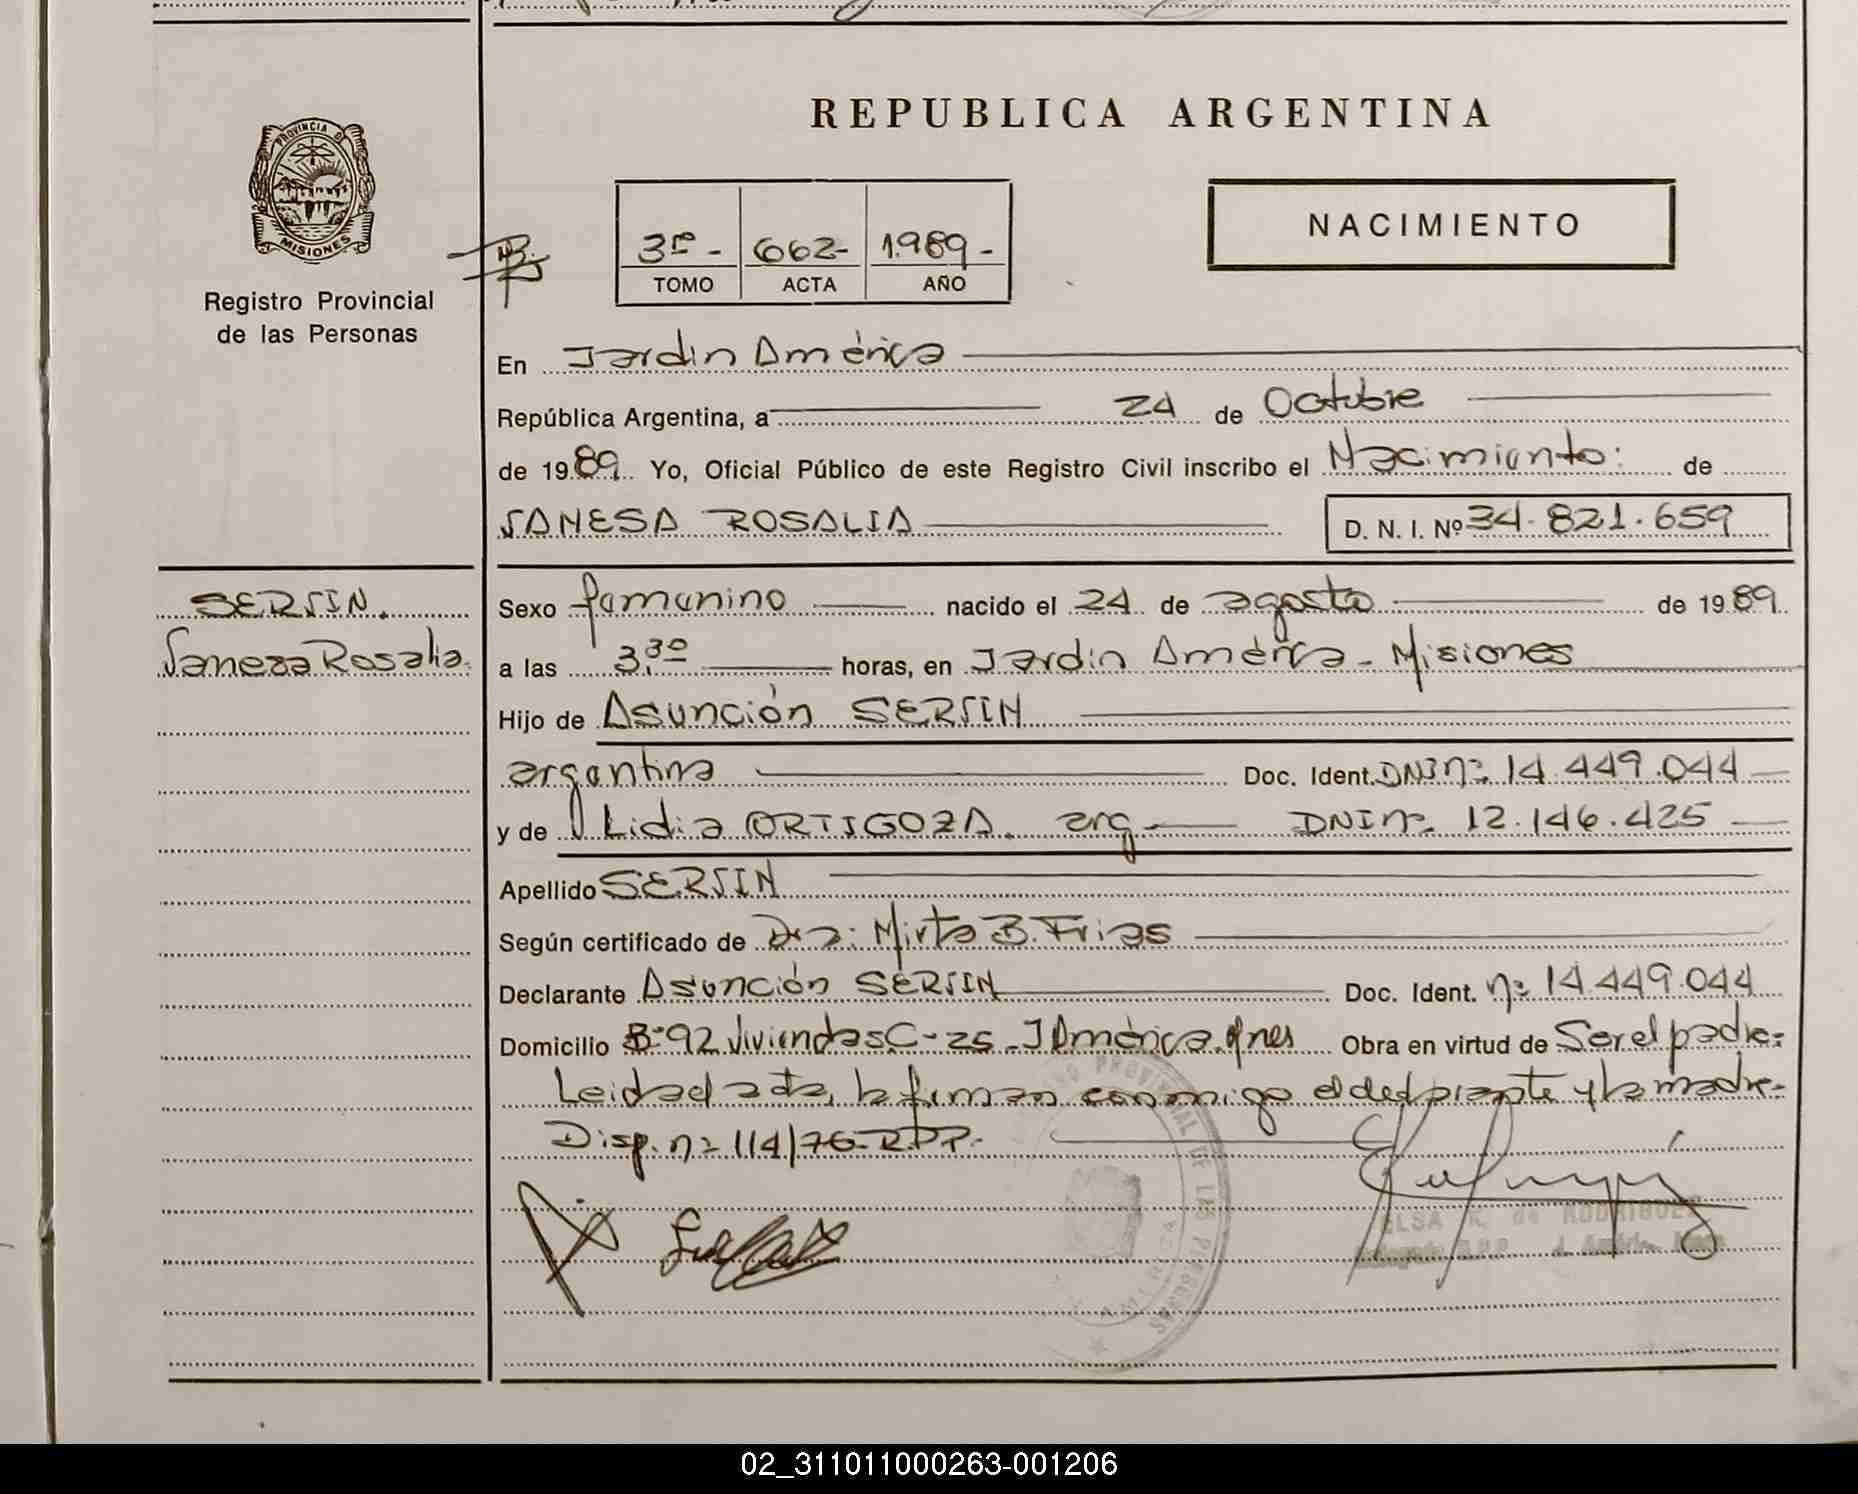 REPUBLICA ARGENTINA
PROVINCIA DE
MISIONES
Registro Provincial
de las Personas
NACIMIENTO
3º - 662- 1.989-
TOMO ACTA AÑO
En Jardin América
República Argentina, a 24 de Octubre
de 1989 Yo, Oficial Público de este Registro Civil inscribo el Nacimiento: de
VANESA ROSALIA D. N. I. Nº 34.821.659
SERVIN.
Vanesa Rosalia.
Sexo femenino nacido el 24 de agosto de 1989
a las 3.30 horas, en Jardin América - Misiones
Hijo de Asunción SERVIN
argentina Doc. Ident. DNI nº 14.449.044
y de Lidia ORTIGOZA. arg DNI nº 12.146.425
Apellido SERVIN
Según certificado de Dra: Mirta B. Frias
Declarante Asunción SERVIN Doc. Ident. nº 14.449.044
Domicilio Bº 92 Viviendas C-25 - J América. Mnes Obra en virtud de Ser el padre:
Leida el acta, la firman conmigo el declarante y la madre-
Disp. nº 114/76-R.P.P.-
PROVINCIAL DE LAS PERSONAS
AMERICA
ELSA K. de RODRIGUEZ
J. América
02_311011000263-001206